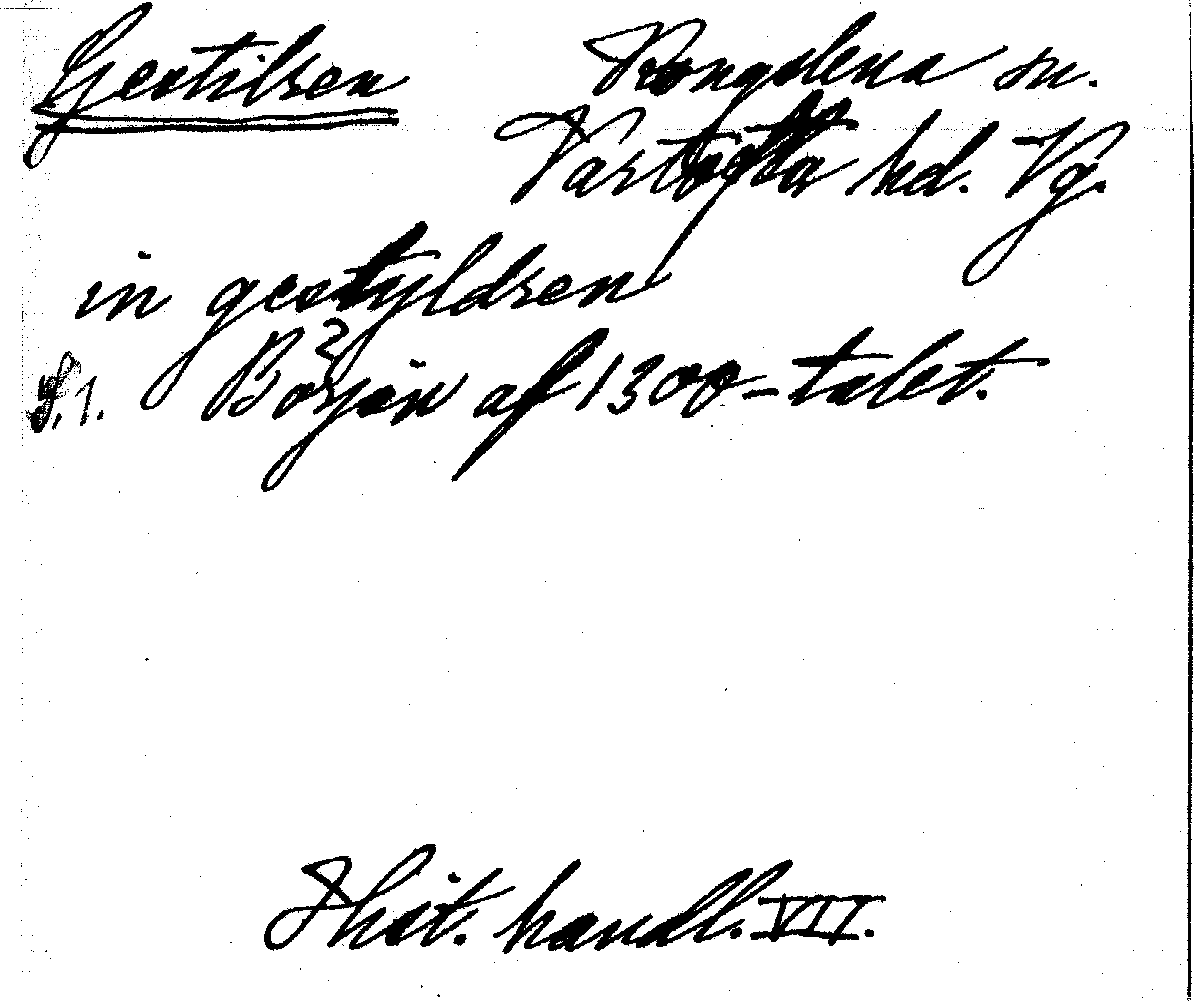 Gestilsen Rångdena sn.
Vartofta hd. Vg.
in gestyldsen
S. 1. Början af 1300-talet.
2
Shist. handl. VII.